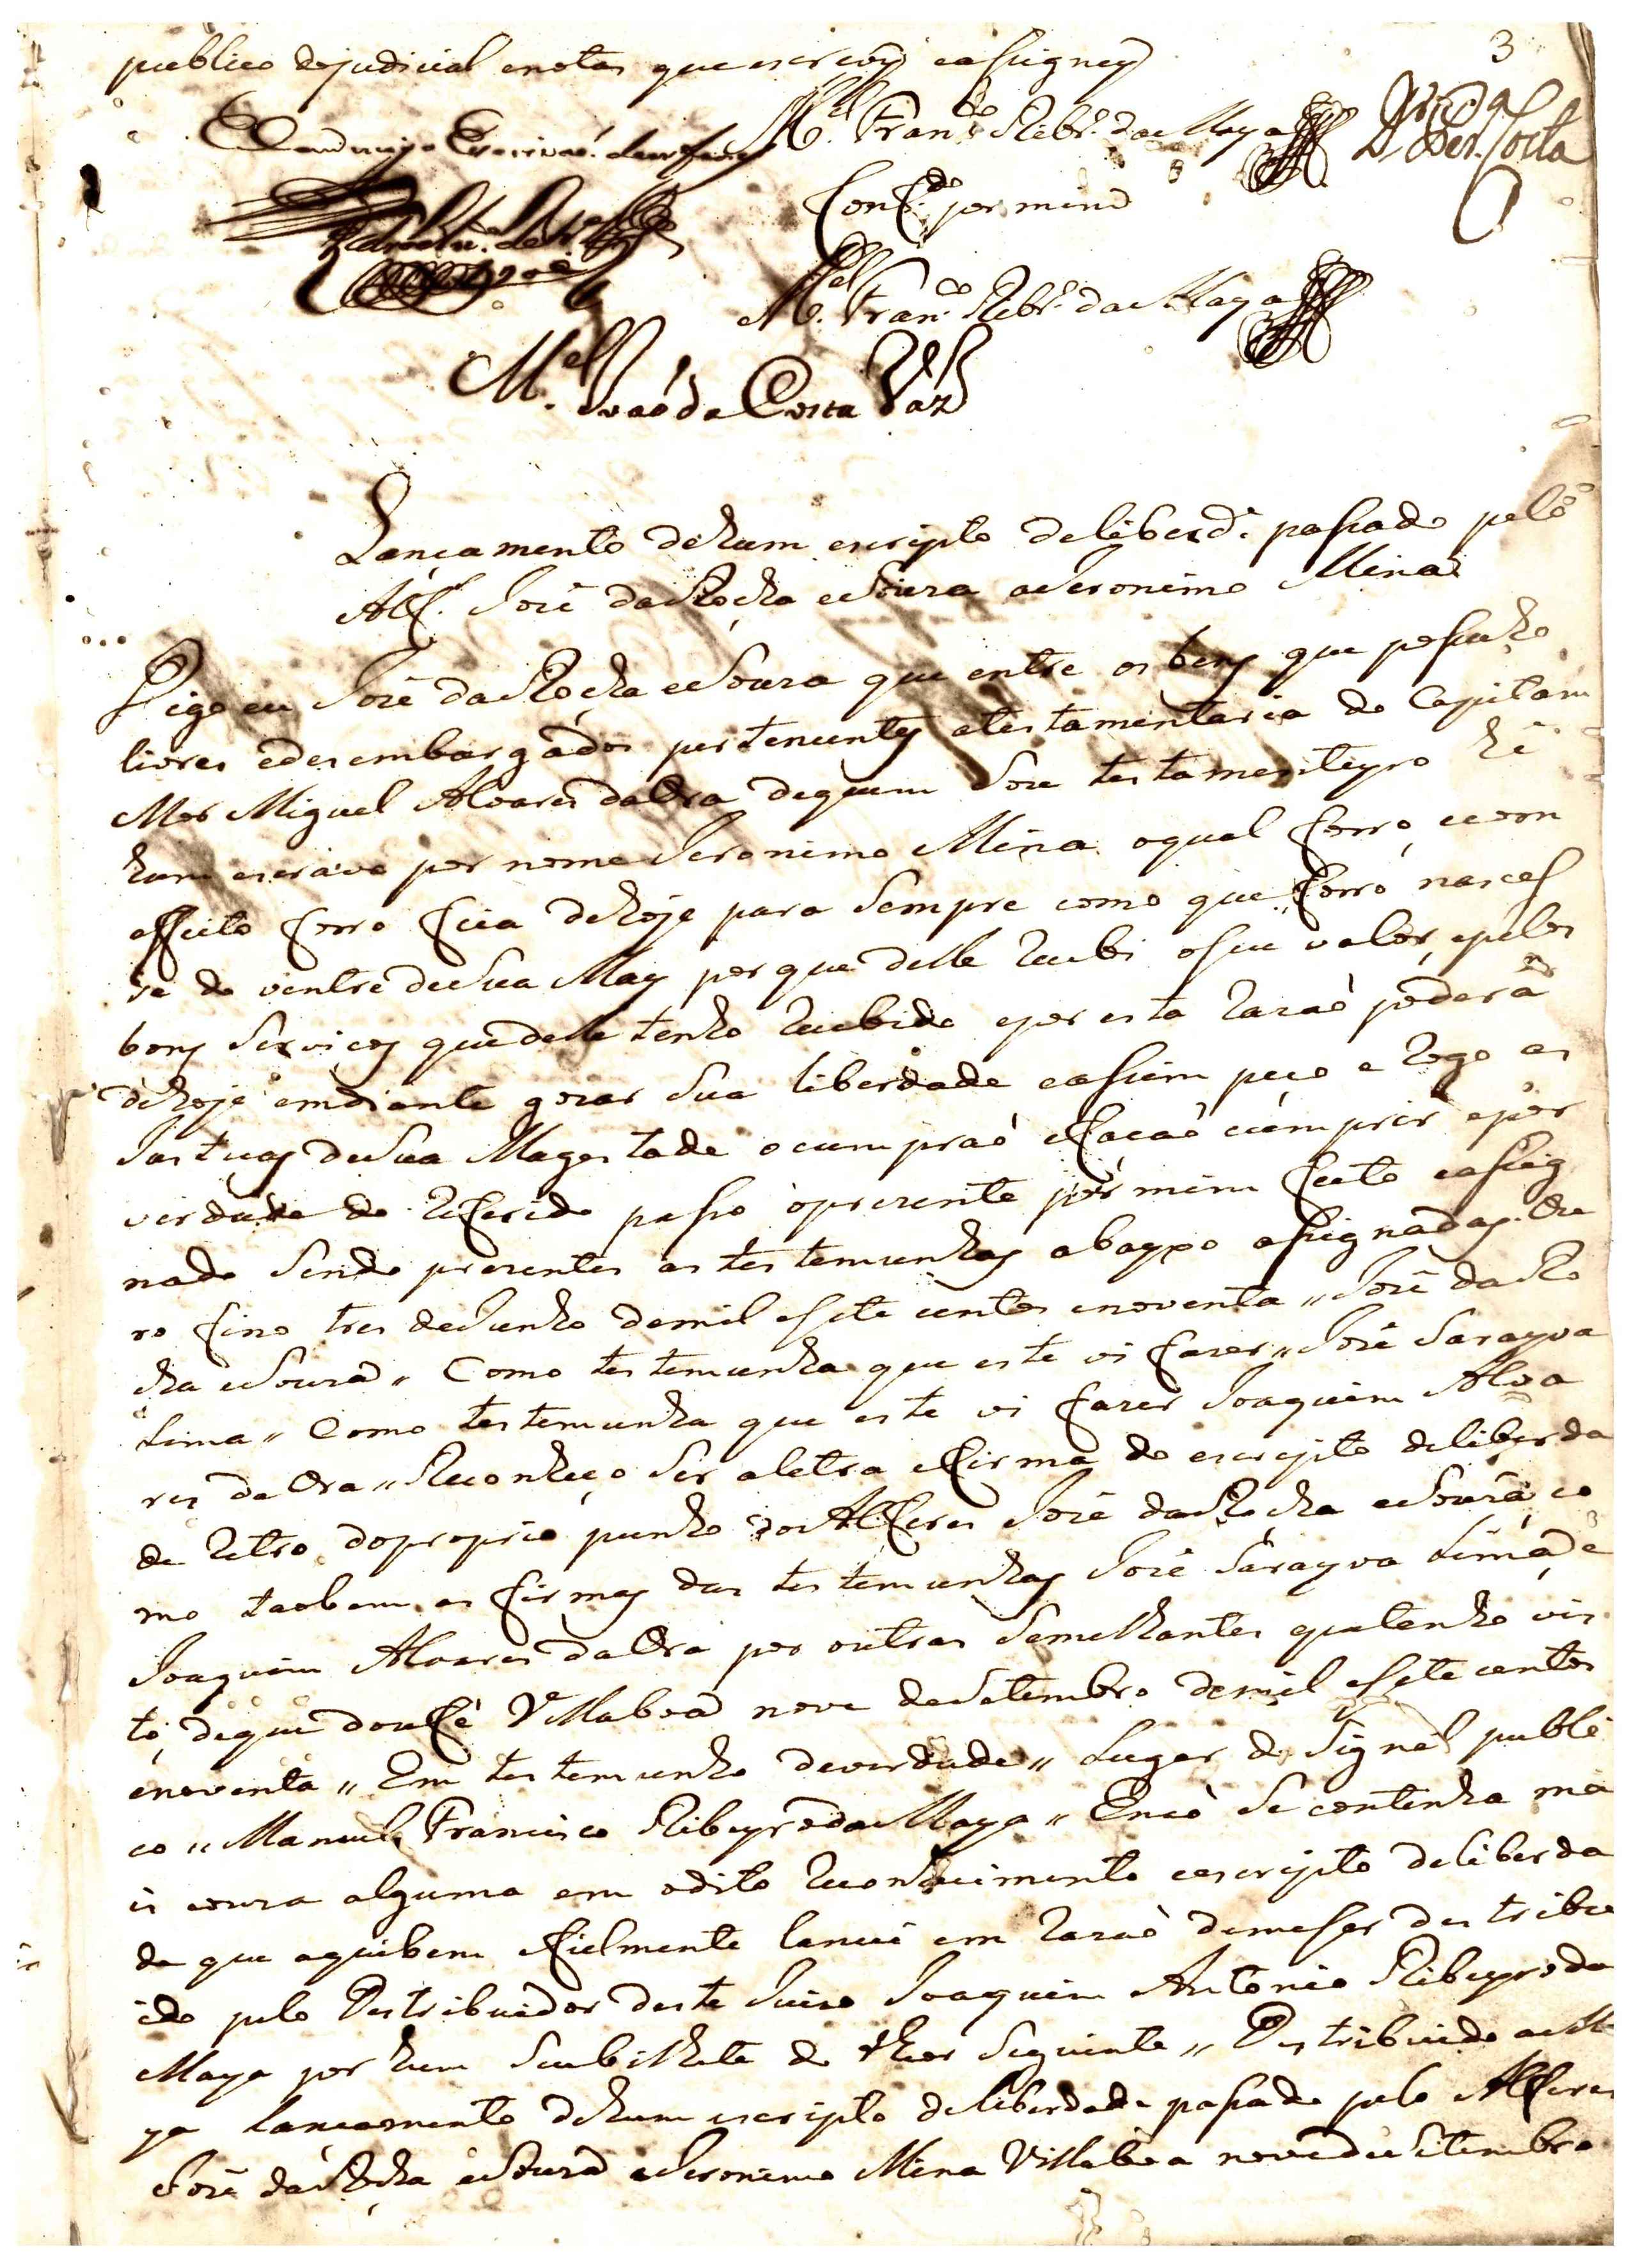 publico dejudicial enotas que escrevy easigney
3
M.el Fran.co Ribr.o da Maya
Costa
Conf.do por mim
M.el Fran.co Ribr.o da Maya
M.el João da Costa Vaz
Lançamento dehum escripto deliberd.e pasado pelo
Alf.s José daRocha eSouza aJeronimo Mina
Digo eu José daRocha eSouza que entre os bens que posuho
livres edesembargados pertencentes atestamentaria do Capitam
Mor Miguel Alvares daOra dequem Sou testamenteyro hé
hum escravo por nome Jeronimo Mina oqual forro ecom
effeito forro fica dehoje para Sempre como que forro nasces
se do ventre deSua May porque delle recebi oseu valor, epelos
bons Serviços quedelle tenho recebido epor esta razaõ poderá
dehoje emdiante gozar Sua liberdade easim peço e rogo as
Justiças deSua Magestade ocumpraõ efaçaõ cumprir epor
verdade do referido paso opresente por mim feito easig
nado Sendo presentes as testemunhas abayxo asignadas. Ou
ro fino tres deJunho demil esete centos enoventa " José daRo
cha eSouza " Como testemunha que este vi fazer " José Sarayva
Lima " Como testemunha que este vi fazer Joaquim Alva
res da Ora " Reconheço Ser aletra efirma do escripto deliberda
de retro doproprio punho do Alferes José daRocha eSouza, co
mo taobem as firmas das testemunhas José Sarayva Lima, e
Joaquim Alvares daOra por outras Semelhantes quetenho vis
to dequedoufé Villaboa nove deSetembro demil esete centos
enoventa " Em testemunho deverdade " Lugar do Signal publi
co " Manuel Francisco Ribeyro da Maya " Enaõ Se continha ma
is couza alguma em odito reconhecimento eescripto deliberda
de que aquibem efielmente lancei em razaõ demeser destribu
ido pelo Destribuidor deste Juizo Joaquim Antonio Ribeyro da
Maya por hum Seubilhete do theor Seguinte " Destribuido aMa
ya Lancamento dehum escripto deliberdade pasado pelo Alferes
José daRocha eSouza aJeronimo Mina Villaboa nove deSetembro